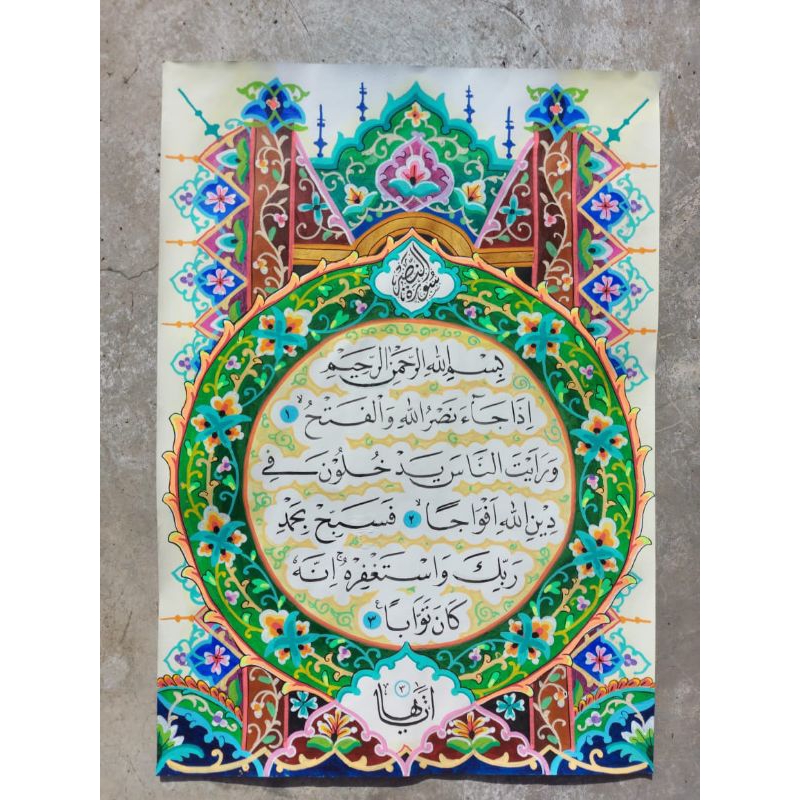 سورة النصر
بِسْمِ اللهِ الرَّحْمٰنِ الرَّحِيْمِ
اِذَا جَآءَ نَصْرُ اللهِ وَالْفَتْحُ ۙ ١
وَرَاَيْتَ النَّاسَ يَدْخُلُوْنَ فِيْ
دِيْنِ اللهِ اَفْوَاجًا ۙ ٢ فَسَبِّحْ بِحَمْدِ
رَبِّكَ وَاسْتَغْفِرْهُ ۗ اِنَّهٗ
كَانَ تَوَّابًا ࣖ ٣
اٰيٰتها ٣